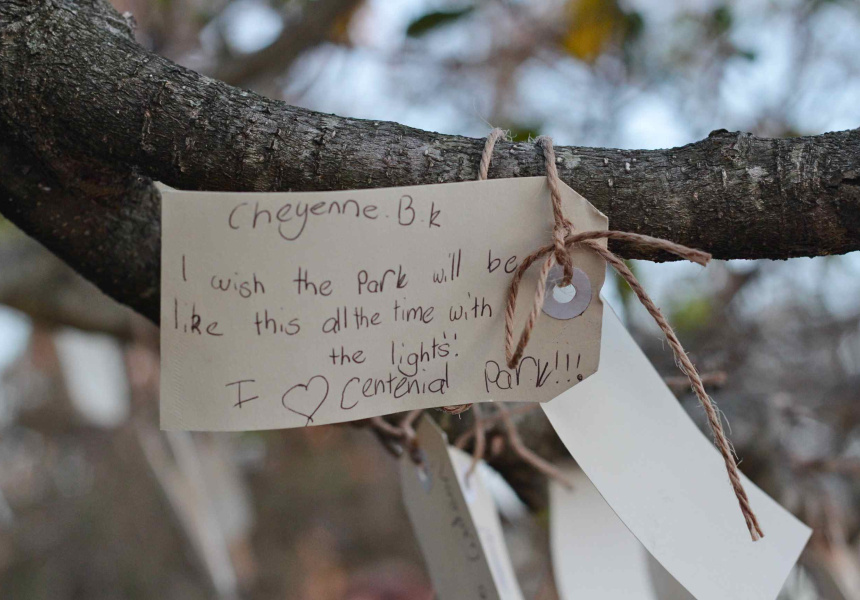 Cheyenne. B.k
I wish the Park will be
like this all the time with
the lights!
I ♡ Centenial Park!!!